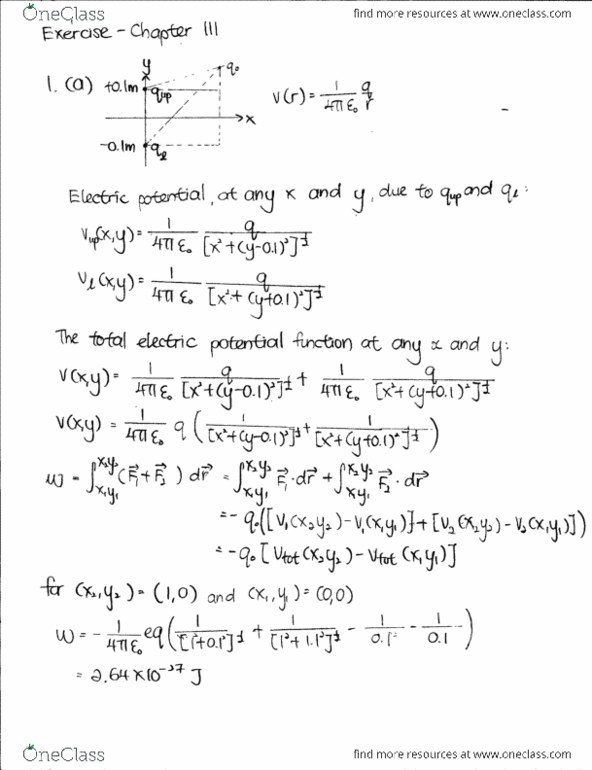 OneClass find more resources at www.oneclass.com
Exercise - Chapter III
1. (a) +0.1m y q₀ q_up
V(r) = 1/4πε₀ q/r
x
-0.1m q_ℓ
Electric potential, at any x and y, due to q_up and q_ℓ :
V_up(x,y) = 1/4πε₀ q/[x²+(y-0.1)²]^½
V_ℓ(x,y) = 1/4πε₀ q/[x²+(y+0.1)²]^½
The total electric potential function at any x and y:
V(x,y) = 1/4πε₀ q/[x²+(y-0.1)²]^½ + 1/4πε₀ q/[x²+(y+0.1)²]^½
V(x,y) = 1/4πε₀ q (1/[x²+(y-0.1)²]^½ + 1/[x²+(y+0.1)²]^½)
W = ∫_{x₁y₁}^{x₂y₂} (F⃗₁+F⃗₂) dr⃗ = ∫_{x₁y₁}^{x₂y₂} F⃗₁·dr⃗ + ∫_{x₁y₁}^{x₂y₂} F⃗₂·dr⃗
= -q₀([V₁(x₂y₂)-V₁(x₁y₁)]+[V₂(x₂y₂)-V₂(x₁y₁)])
= -q₀[V_tot(x₂y₂)-V_tot(x₁y₁)]
for (x₂,y₂) = (1,0) and (x₁,y₁) = (0,0)
W = -1/4πε₀ eq(1/[1²+0.1²]^½ + 1/[1²+1.1²]^½ - 1/0.1 - 1/0.1)
= 2.64×10⁻³⁷ J
OneClass find more resources at www.oneclass.com